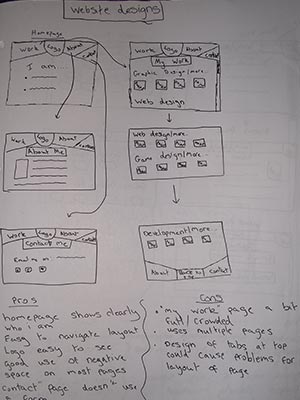 Website designs
Homepage
Work Logo About Contact
I am...
Work Logo About Contact
My Work
Graphic Design/more...
Web design
Work Logo About Contact
About Me
Web design/more...
Game design/more...
Work Logo About Contact
Contact Me
Email me on
Development/more...
About Back to Contact
Pros
homepage shows clearly
who i am
Easy to navigate layout
Logo easy to see
good use of negative
space on most pages
contact" page doesn't use
a form
Cons
"my work" page a bit
full/crowded
uses multiple pages
Design of tabs at top
could cause problems for
layout of page